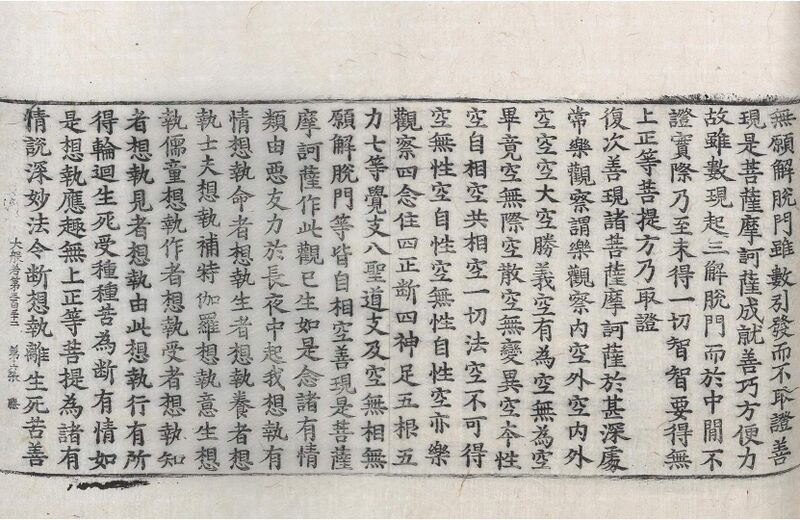 無願解脫門雖數引發而不取證善
現是菩薩摩訶薩成就善巧方便力
故雖數現起三解脫門而於中閒不
證實際乃至未得一切智智要得無
上正等菩提方乃取證
復次善現諸菩薩摩訶薩於甚深處
常樂觀察謂樂觀察內空外空內外
空空空大空勝義空有為空無為空
畢竟空無際空散空無變異空本性
空自相空共相空一切法空不可得
空無性空自性空無性自性空亦樂
觀察四念住四正斷四神足五根五
力七等覺支八聖道支及空無相無
願解脫門等皆自相空善現是菩薩
摩訶薩作此觀已生如是念諸有情
類由惡友力於長夜中起我想執有
情想執命者想執生者想執養者想
執士夫想執補特伽羅想執意生想
執儒童想執作者想執受者想執知
者想執見者想執由此想執行有所
得輪迴生死受種種苦為斷有情如
是想執應趣無上正等菩提為諸有
情說深妙法令斷想執離生死苦善
大般若第三百三十